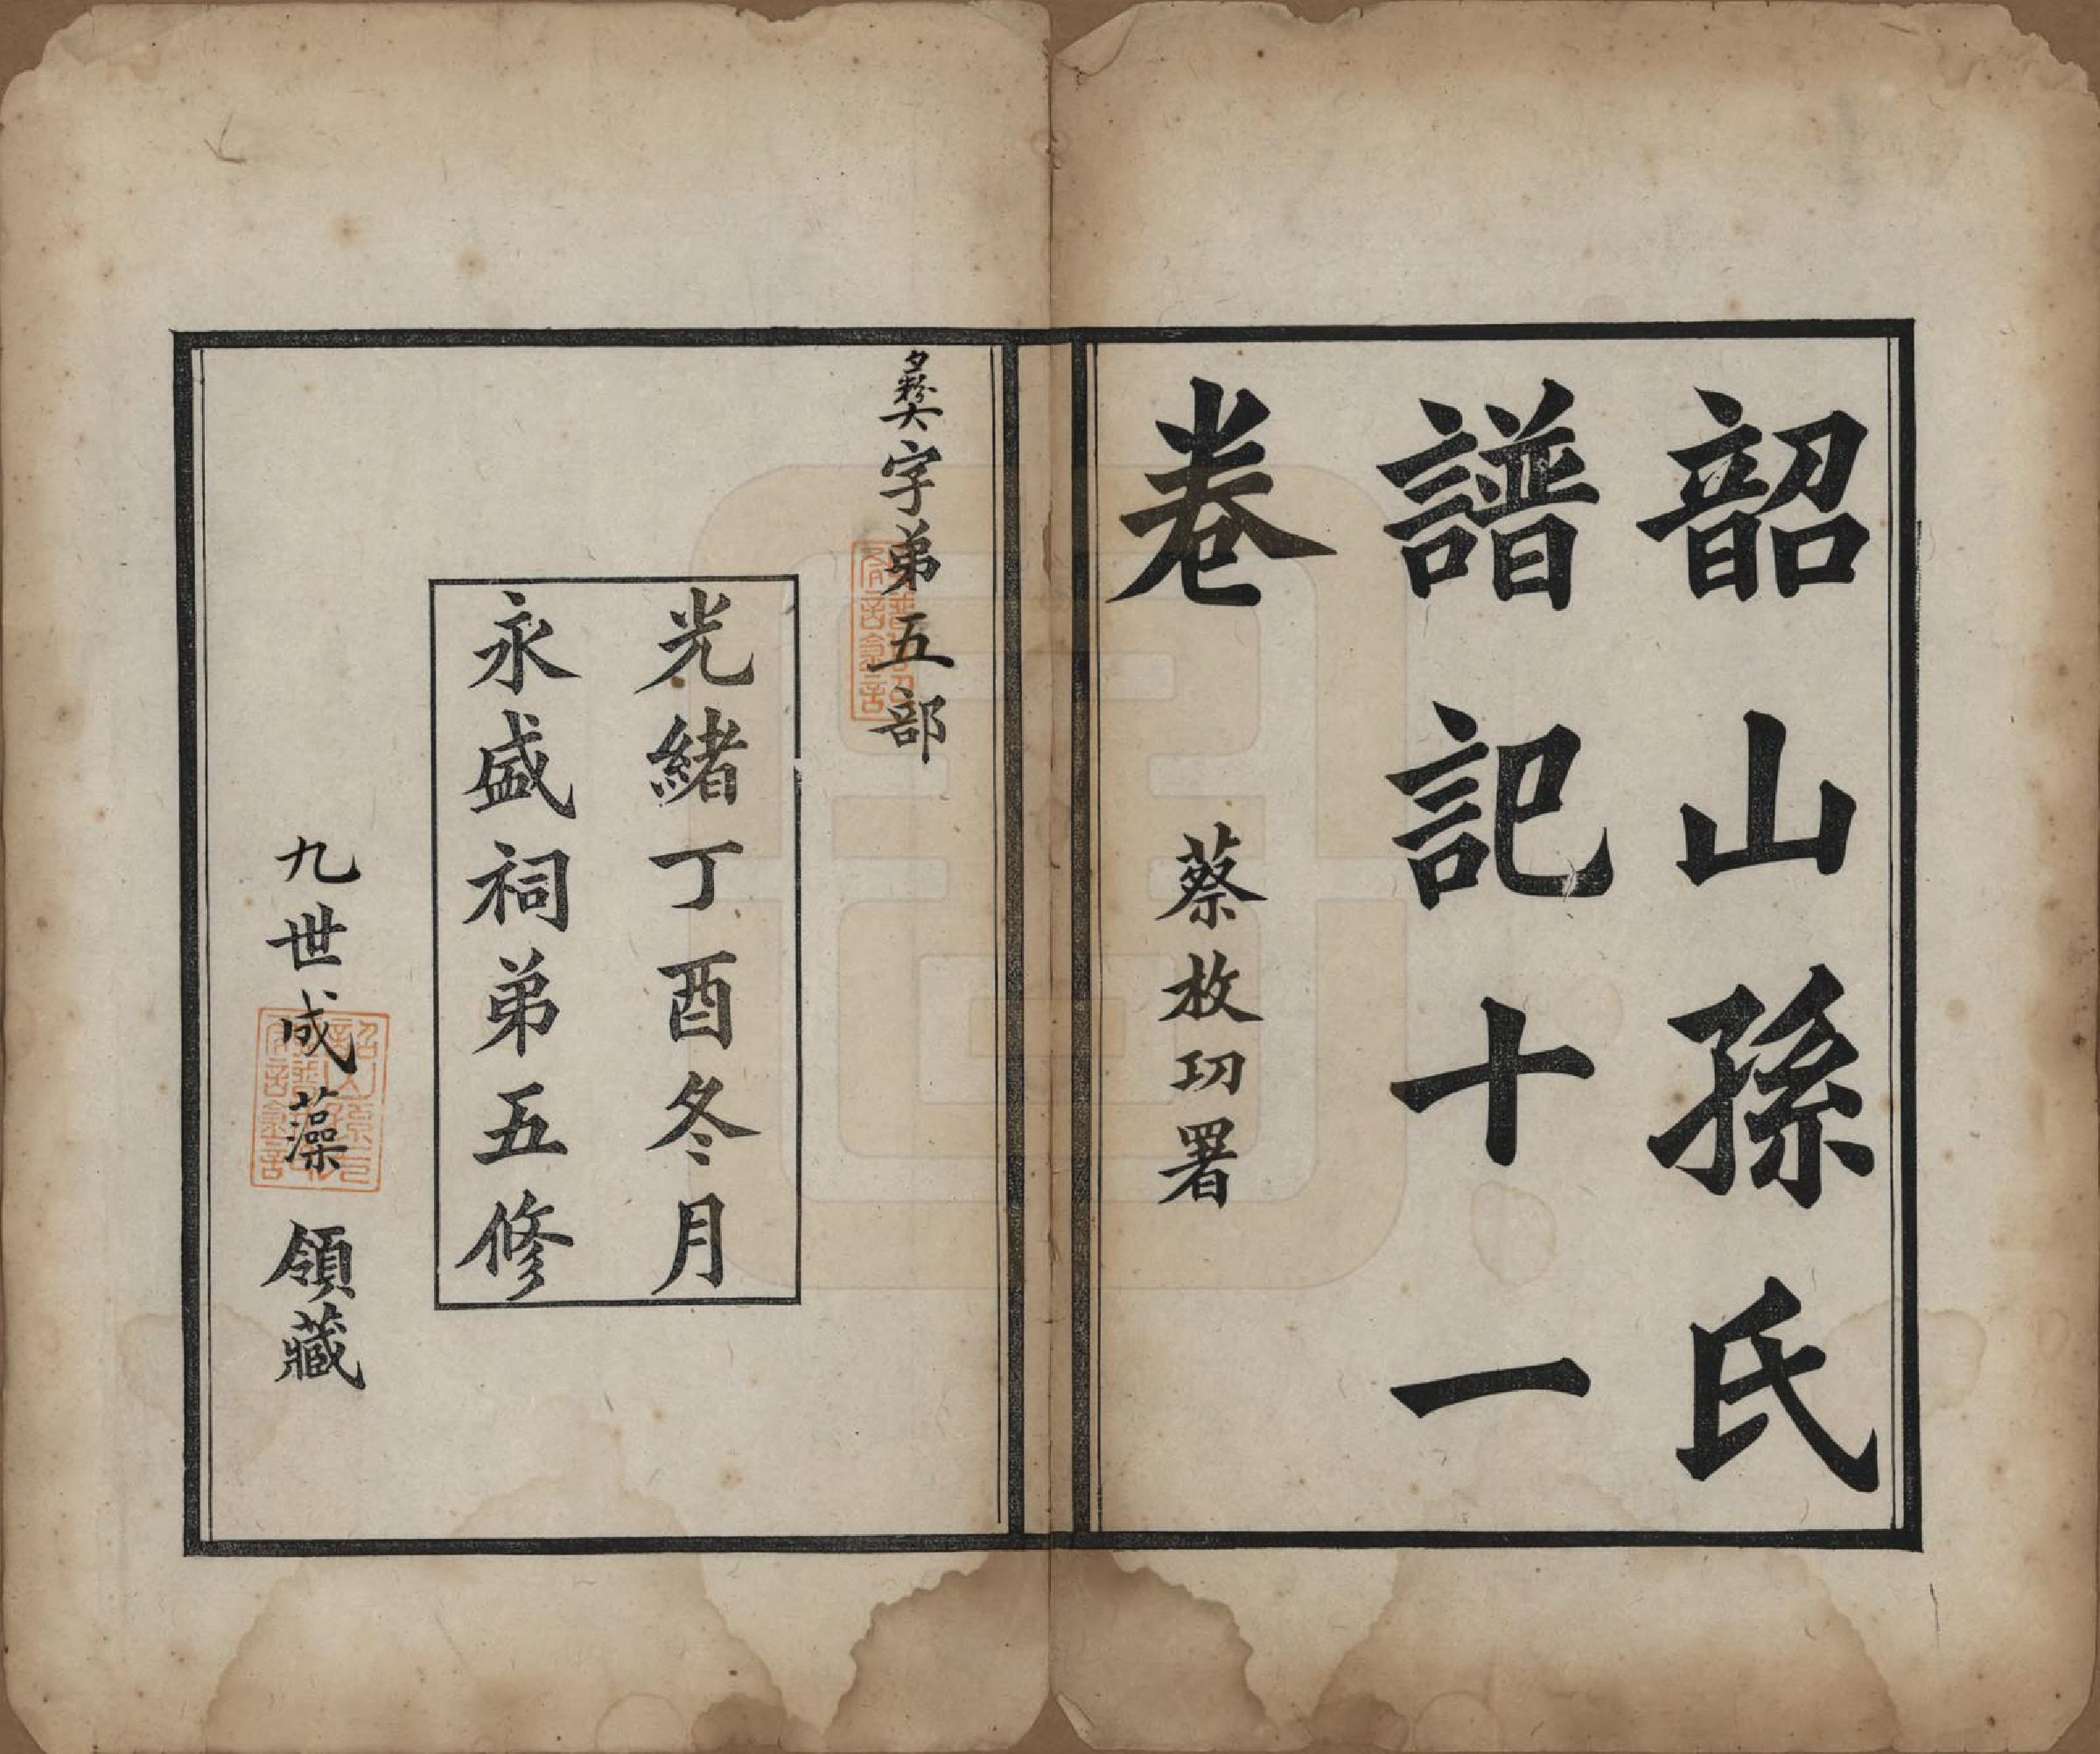 韶山孫氏
譜記十一
卷
蔡枚功署
字弟五部
光緒丁酉冬月
永盛祠弟五修
九世成藻領藏
韶山孫氏